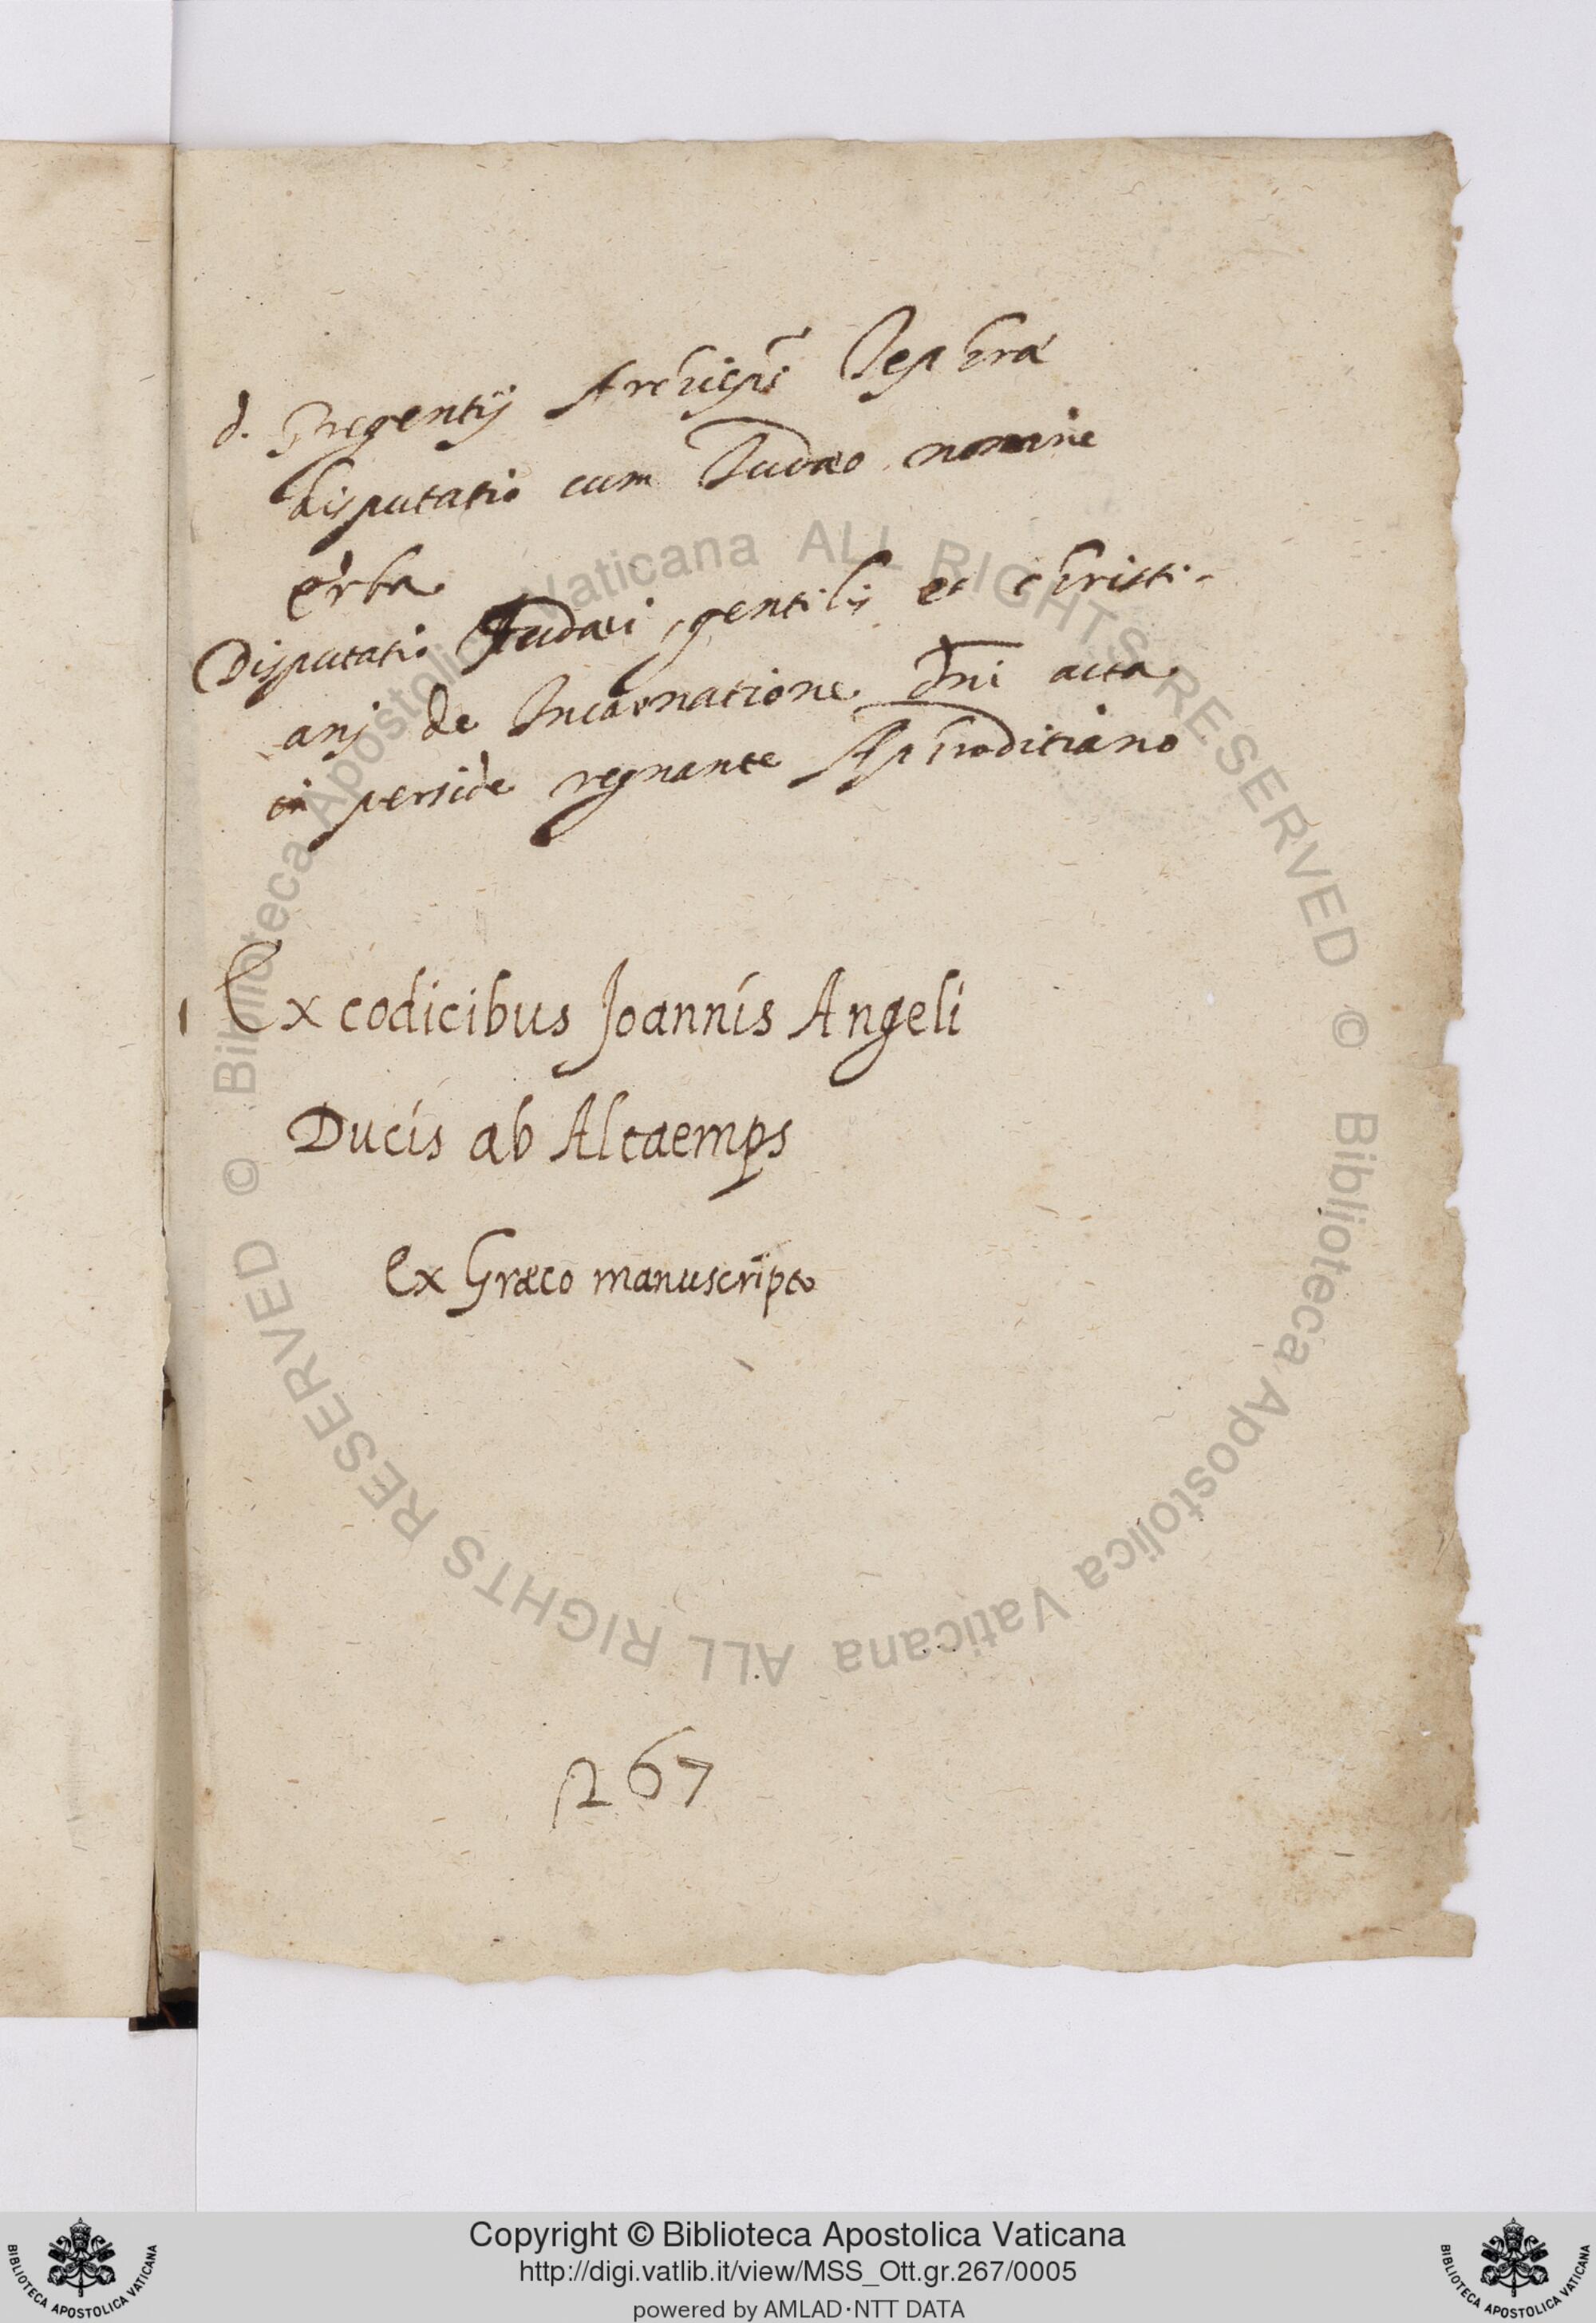 d. Gregentij Archiepī Tephra
disputatio cum Judæo nomine
erba
Disputatio Judæi, gentilis et christi-
anj de Incarnatione Dn̄i acta
in perside regnante Aphroditiano
Ex codicibus Joannis Angeli
Ducis ab Altaemps
Ex Græco manuscripto
267
© Biblioteca Apostolica Vaticana ALL RIGHTS RESERVED
© Biblioteca Apostolica Vaticana ALL RIGHTS RESERVED
BIBLIOTECA APOSTOLICA VATICANA
Copyright © Biblioteca Apostolica Vaticana
http://digi.vatlib.it/view/MSS_Ott.gr.267/0005
powered by AMLAD·NTT DATA
BIBLIOTECA APOSTOLICA VATICANA